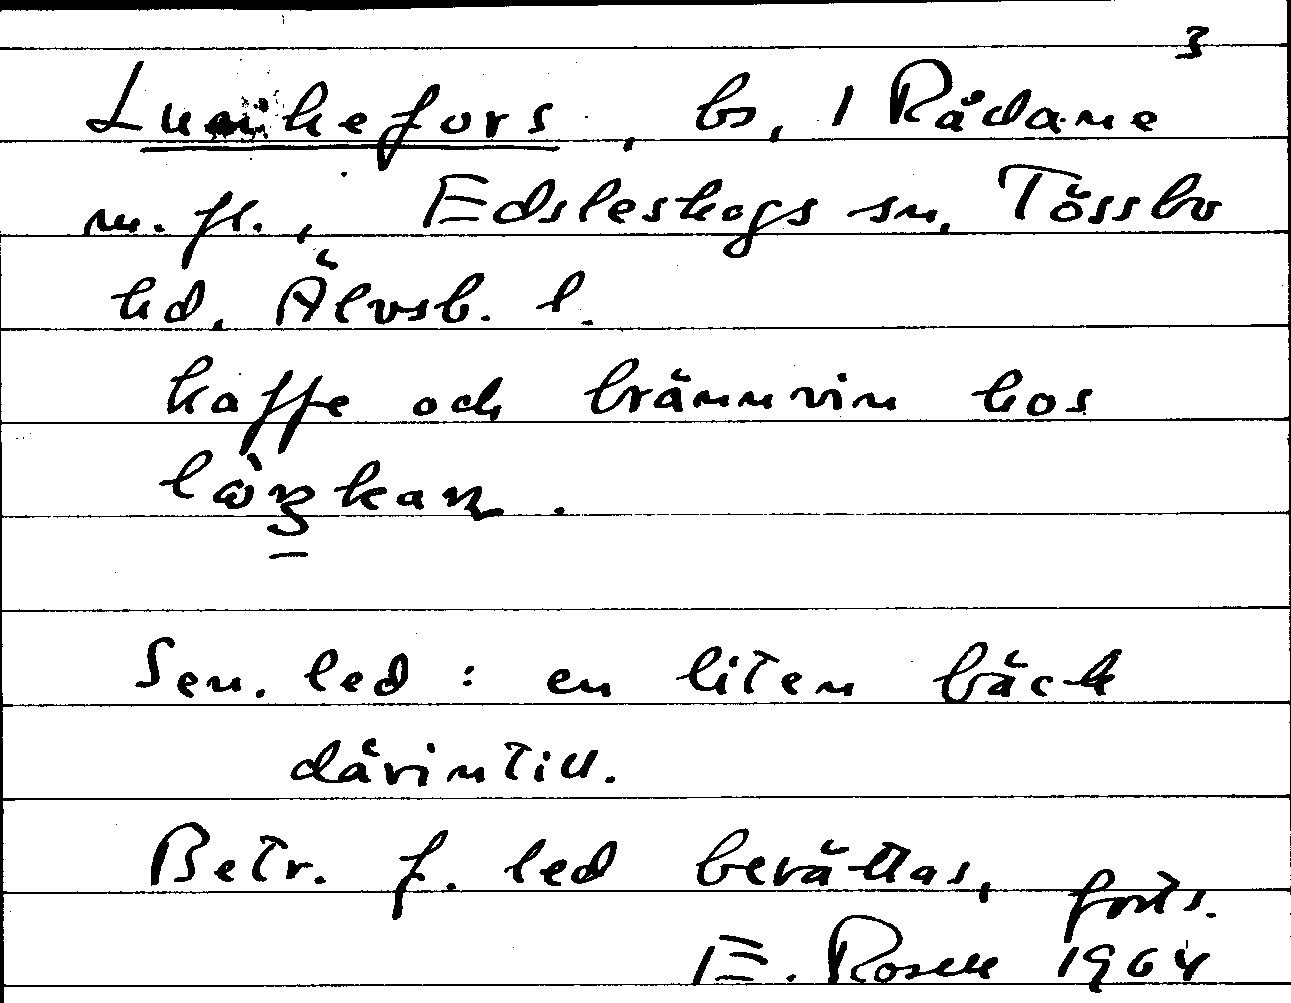 3
Lunkefors, bs, 1 Rådane
m. fl., Edsleskogs sn, Tössbo
hd, Älvsb. l.
kaffe och brännvin hos

Sen. led : en liten bäck
därintill.
Betr. f. led berättas, forts.
E. Rosell 1964